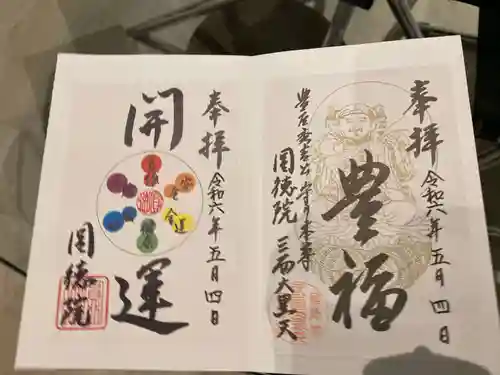 奉拝
令和六年五月四日
豊福
豊臣秀吉公守り本尊
三面大黒天
圓徳院
奉拝
令和六年五月四日
開運
金運
圓徳院